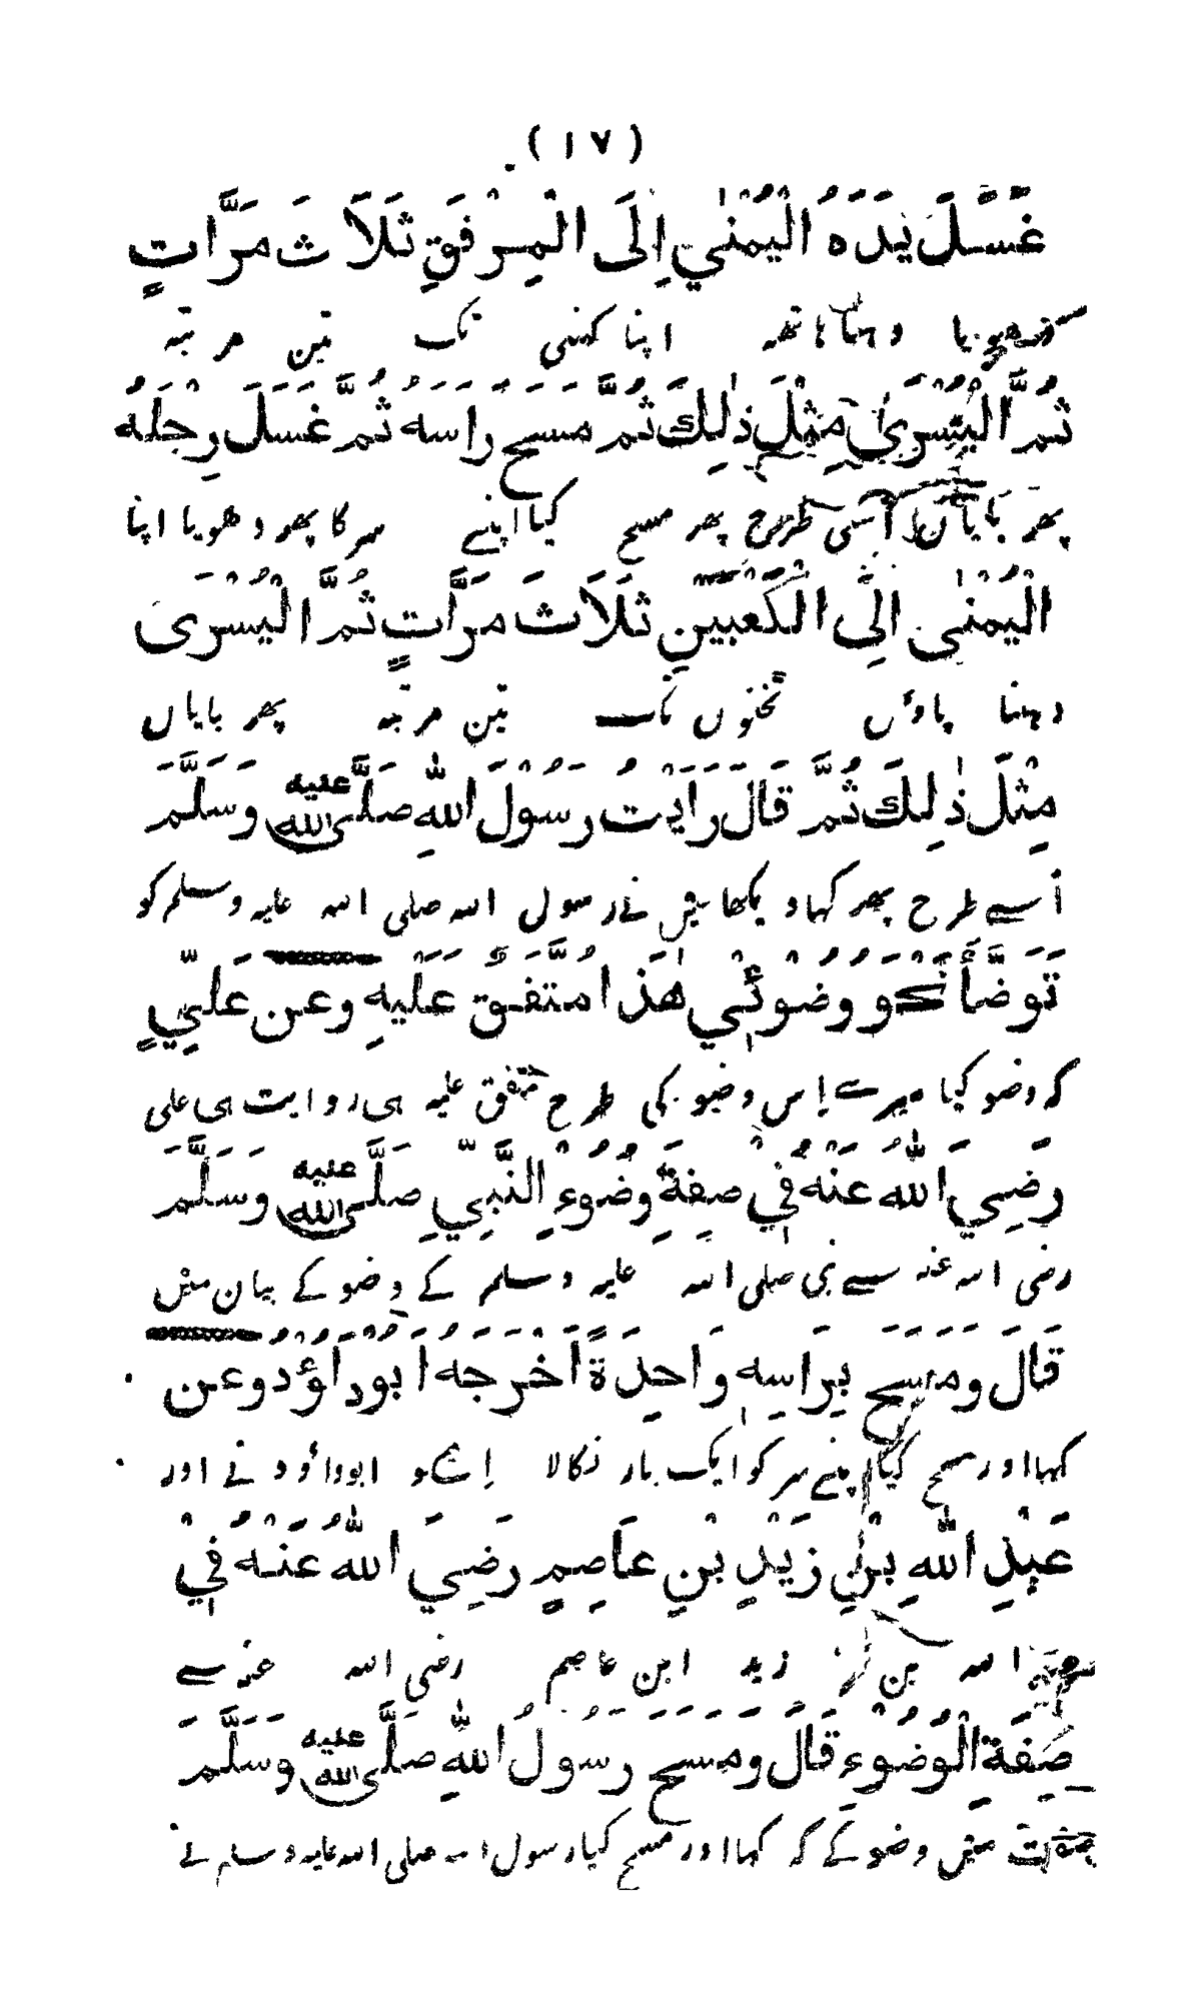 (١٧)
غَسَلَ يَدَهُ الْيُمْنٰى اِلَى الْمِرْفَقِ ثَلَاثَ مَرَّاتٍ
دھویا دہنا ہاتھہ اپنا کہنی تک تین مرتبہ
ثُمَّ الْيُسْرٰى مِثْلَ ذٰلِكَ ثُمَّ مَسَحَ رَاسَهُ ثُمَّ غَسَلَ رِجْلَهُ
پھر بایاں اسی طرح پھر مسح کیا اپنے سر کا پھر دھویا اپنا
الْيُمْنٰى اِلَى الْكَعْبَيْنِ ثَلَاثَ مَرَّاتٍ ثُمَّ الْيُسْرَى
دہنا پاؤں ٹخنوں تک تین مرتبہ پھر بایاں
مِثْلَ ذٰلِكَ ثُمَّ قَالَ رَاَيْتُ رَسُوْلَ اللّٰهِ صَلَّى اللّٰه عليه وَسَلَّمَ
اُسے طرح پھر کہا دیکھا میں نے رسول اللہ صلی اللہ علیہ وسلم کو
تَوَضَّأَ نَحْوَ وُضُوْئِيْ هٰذَا مُتَّفَقٌ عَلَيْهِ وعن عَلِيٍّ
کہ وضو کیا میرے اِس وضو کی طرح متفق علیہ ہی روایت ہی علی
رَضِيَ اللّٰهُ عَنْهُ فِيْ صِفَةِ وُضُوْءِ النَّبِيِّ صَلَّى اللّٰه عليه وَسَلَّمَ
رضی اللہ عنہ سے نبی صلی اللہ علیہ وسلم کے وضو کے بیان میں
قَالَ وَمَسَحَ بِرَاسِهٖ وَاحِدَةً اَخْرَجَهُ اَبُوْدَاوُدَ وعن
کہا اور مسح کیا اپنے سر کو ایک بار نکالا اِسکو ابوداؤد نے اور
عَبْدِ اللّٰهِ بْنِ زَيْدِ بْنِ عَاصِمٍ رَضِيَ اللّٰهُ عَنْهُ فِيْ
اللہ بن زید ابن عاصم رضی اللہ عنہ سے
صِفَةِ الْوُضُوْءِ قَالَ وَمَسَحَ رَسُوْلُ اللّٰهِ صَلَّى اللّٰه عليه وَسَلَّمَ
صفت میں وضو کے کہ کہا اور مسح کیا رسول اللہ صلی اللہ علیہ وسلم نے